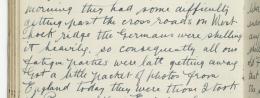 morning they had some difficulty
getting past the cross roads on West
hoek ridge the Germans were shelling
it heavily, so consequently all our
fatigue parties were late getting away.
Got a little packet of photos from
England today they were those I took